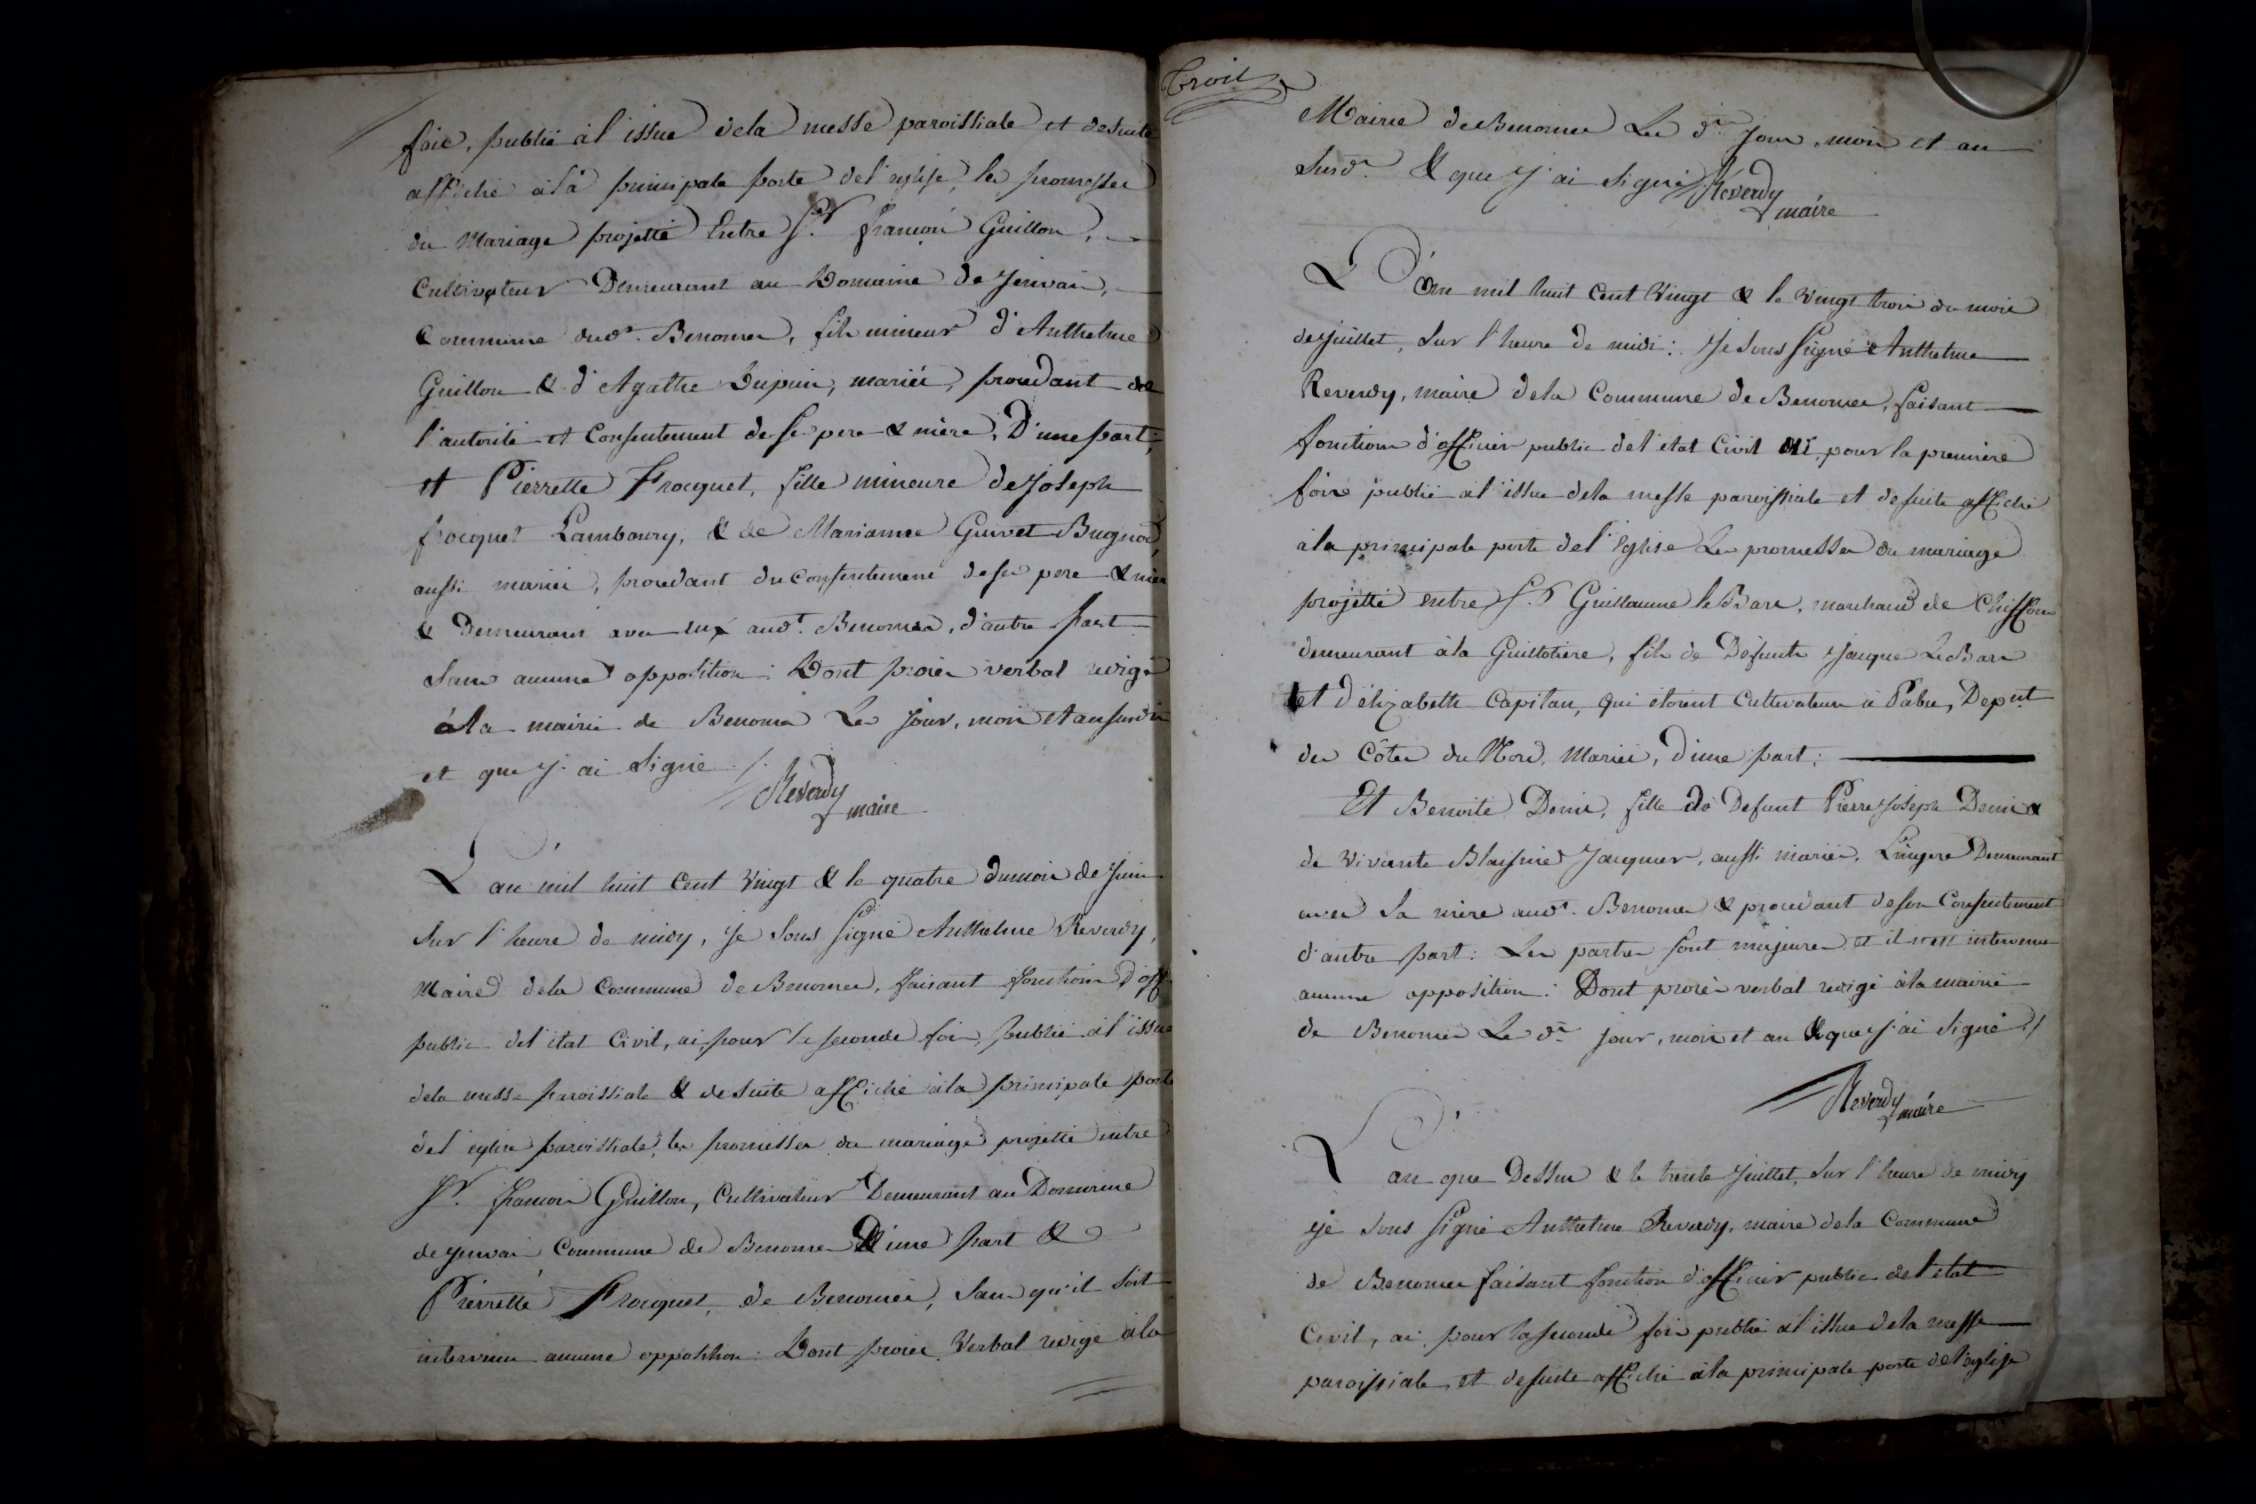 fois, publié à l'issue dela messe paroissiale et desuite
affiché à la principale porte del'eglise, les promesses
du Mariage projetté Entre Sr. françois Guillon,
Cultivateur Demeurant au Domaine de Jervais,
Commune dud. Benonces, fils mineur d'Anthelme
Guillon & d'Agathe Dupuis, mariés, procedant de
l'autorité et Consentement de ses pere & mère, D'une part;
et Pierrette Frocquet, fille mineure de Joseph
frocquet Lamboury, & de Marianne Guivet Bugnod,
aussi mariés, procedant du Consentement de ses pere & mere
& Demeurant avec eux aud. Benonces, d'autre Part
Sans aucune opposition: Dont procès verbal redigé
à la mairie de Benonces Les Jour, mois et an susdit
et que J'ai Signé ./.
Reverdy
maire
L'an mil huit Cent Vingt & le quatre dumois de Juin
Sur l'heure de midy, Je Sous Signé Anthelme Reverdy,
Maire dela Commune de Benonces, faisant fonctions D'off.
public del'état Civil, ai pour la seconde fois, publié à l'issue
dela messe Paroissiale & de Suite affiché à la principale porte
del'eglise paroissiale, les promesses du mariage projetté entre
Sr. françois Guillon, Cultivateur Demeurant au Domaine
de Jervais Commune de Benonces D'une part &
Pierrette Frocquet, de Benonces, Sans qu'il Soit
intervenu aucune opposition: Dont procès Verbal redigé à la
Trois
Mairie de Benonces Les dt. Jour, mois et an
Susd. & que J'ai Signé ./. Reverdy
maire
L'an mil huit Cent Vingt & le Vingt trois du mois
de Juillet, Sur l'heure de midi: Je Sous Signé Anthelme
Reverdy, maire dela Commune de Benonces, faisant
fonctions d'officier public del'état Civil ai, pour la premiere
fois publié à l'issue dela messe paroissiale et desuite affiché
à la principale porte del'Eglise Les promesses du mariage
projetté entre Sr. Guillaume le Bars, marchand de Chiffons
demeurant à la Guillotiere, fils de Défunts Jacques Le Bars
et d'élizabeth Capitan, qui étoient Cultivateurs à Pabu, Depnt
des Côtes du Nord, Mariés, d'une part;
Et Benoite Denis, fille de Defunt Pierre Joseph Denis &
de Vivante Blaisine Jacquier, aussi mariés, Lingere Demeurant
avec Sa mère aud. Benonces & procedant de son Consentement
d'autre part: Les parties Sont majeures et il n'est intervenu
aucune opposition: Dont procès verbal redigé à la mairie
de Benonces Les dt. jour, mois et an & que J'ai Signé ./.
Reverdy
maire
L'an que Dessus & le trente Juillet, Sur l'heure de midy
je Sous Signé Anthelme Reverdy, maire dela Commune
de Benonces faisant fonction d'officier public del'état
Civil, ai pour la seconde fois publié à l'issue dela messe
paroissiale et desuite affiché à la principale porte del'eglise